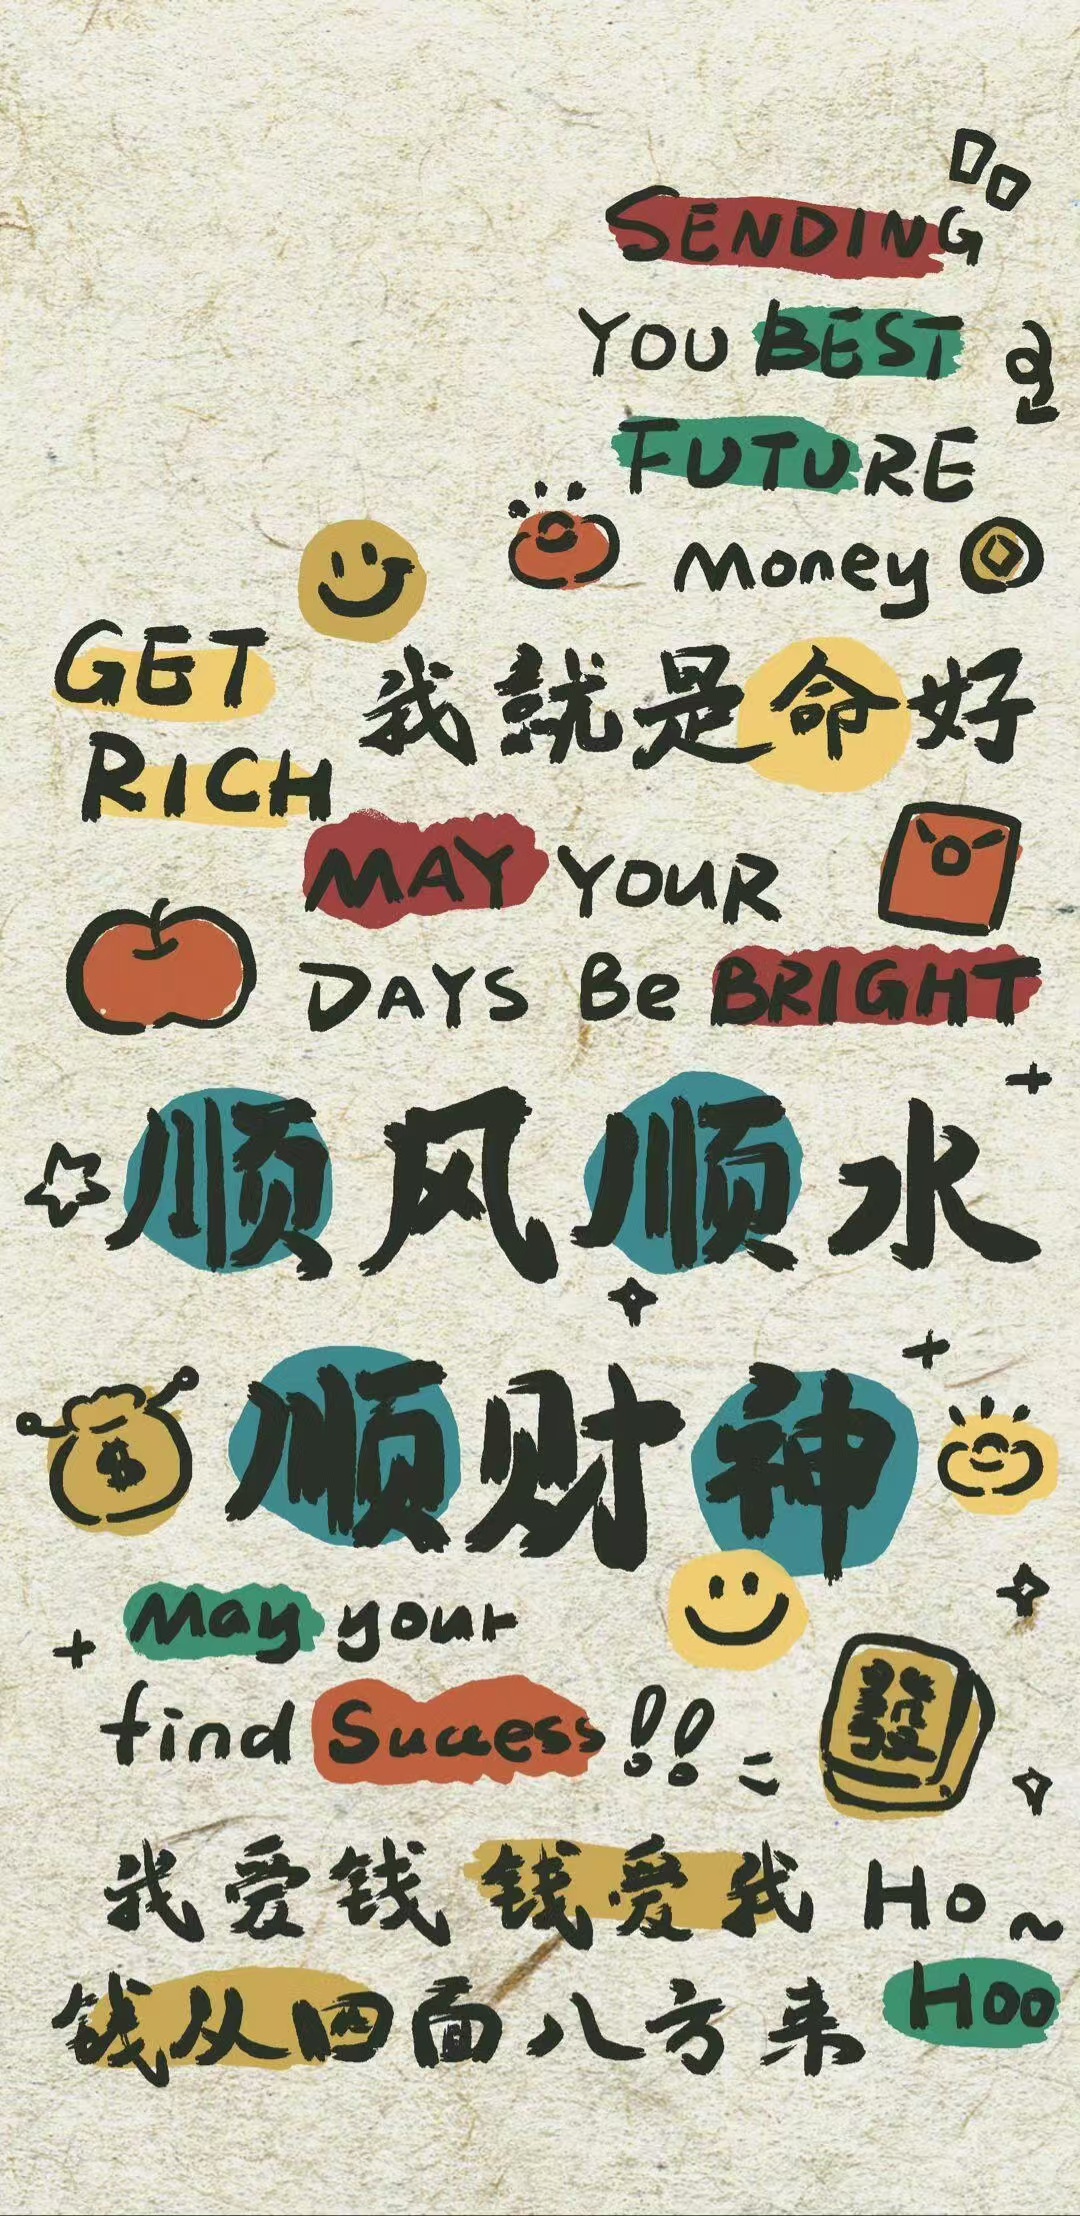 SENDING
YOU BEST
FUTURE
money
GET
RICH
我就是命好
MAY YOUR
DAYS Be BRIGHT
顺风顺水
$
顺财神
May your
find Success!!
發
我爱钱 钱爱我 Ho~
钱从四面八方来 Hoo